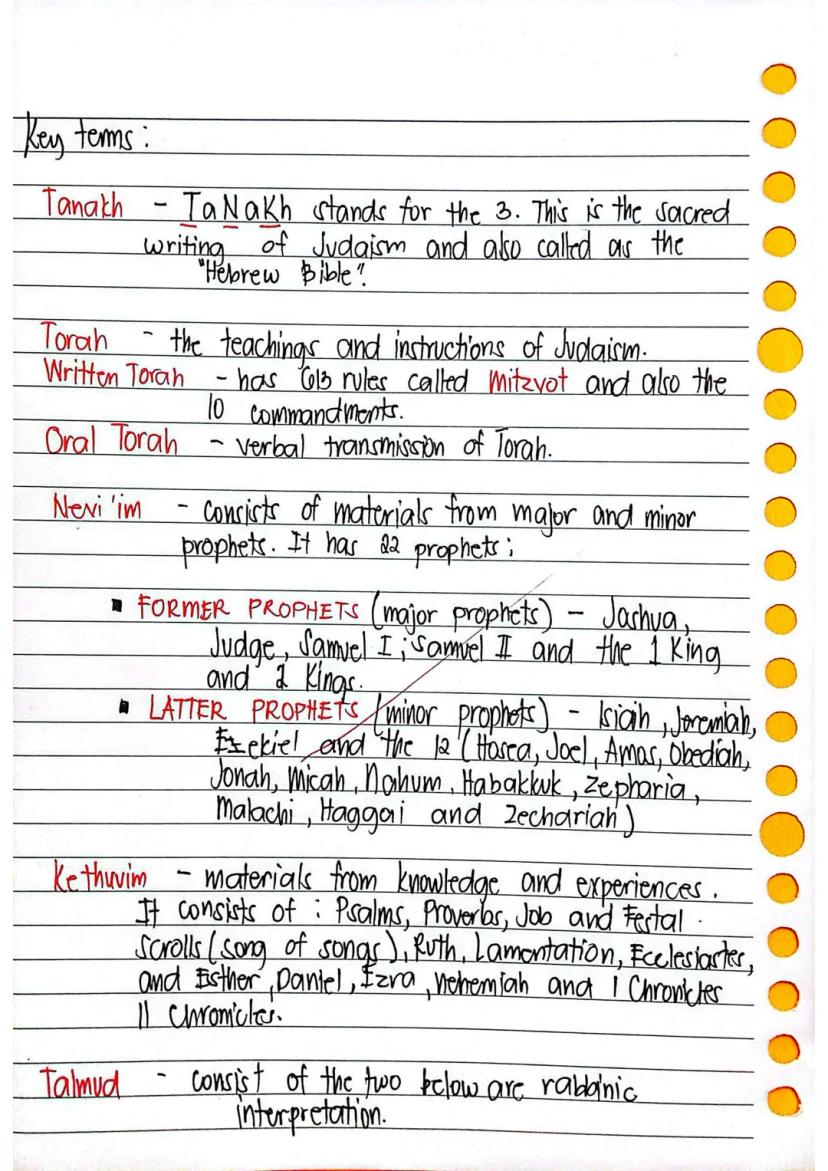 Key terms :
Tanakh - TaNaKh stands for the 3. This is the sacred
writing of Judaism and also called as the
"Hebrew Bible".
Torah - the teachings and instructions of Judaism.
Written Torah - has 613 rules called Mitzvot and also the
10 commandments.
Oral Torah - verbal transmission of Torah.
Nevi'im - consists of materials from major and minor
prophets. It has 22 prophets ;
▪ FORMER PROPHETS (major prophets) - Jashua,
Judge, Samuel I ; Samuel II and the 1 King
and 2 Kings.
▪ LATTER PROPHETS (minor prophets) - Isiaih, Jeremiah,
Ezekiel and the 12 (Hosea, Joel, Amos, Obediah,
Jonah, Micah, Nahum, Habakkuk, Zepharia,
Malachi, Haggai and Zechariah)
Kethuvim - materials from knowledge and experiences.
It consists of : Psalms, Proverbs, Job and Festal
Scrolls (song of songs), Ruth, Lamentation, Ecclesiastes,
and Esther, Daniel, Ezra, Nehemiah and I Chronicles
II Chronicles.
Talmud - consist of the two below are rabbinic
interpretation.